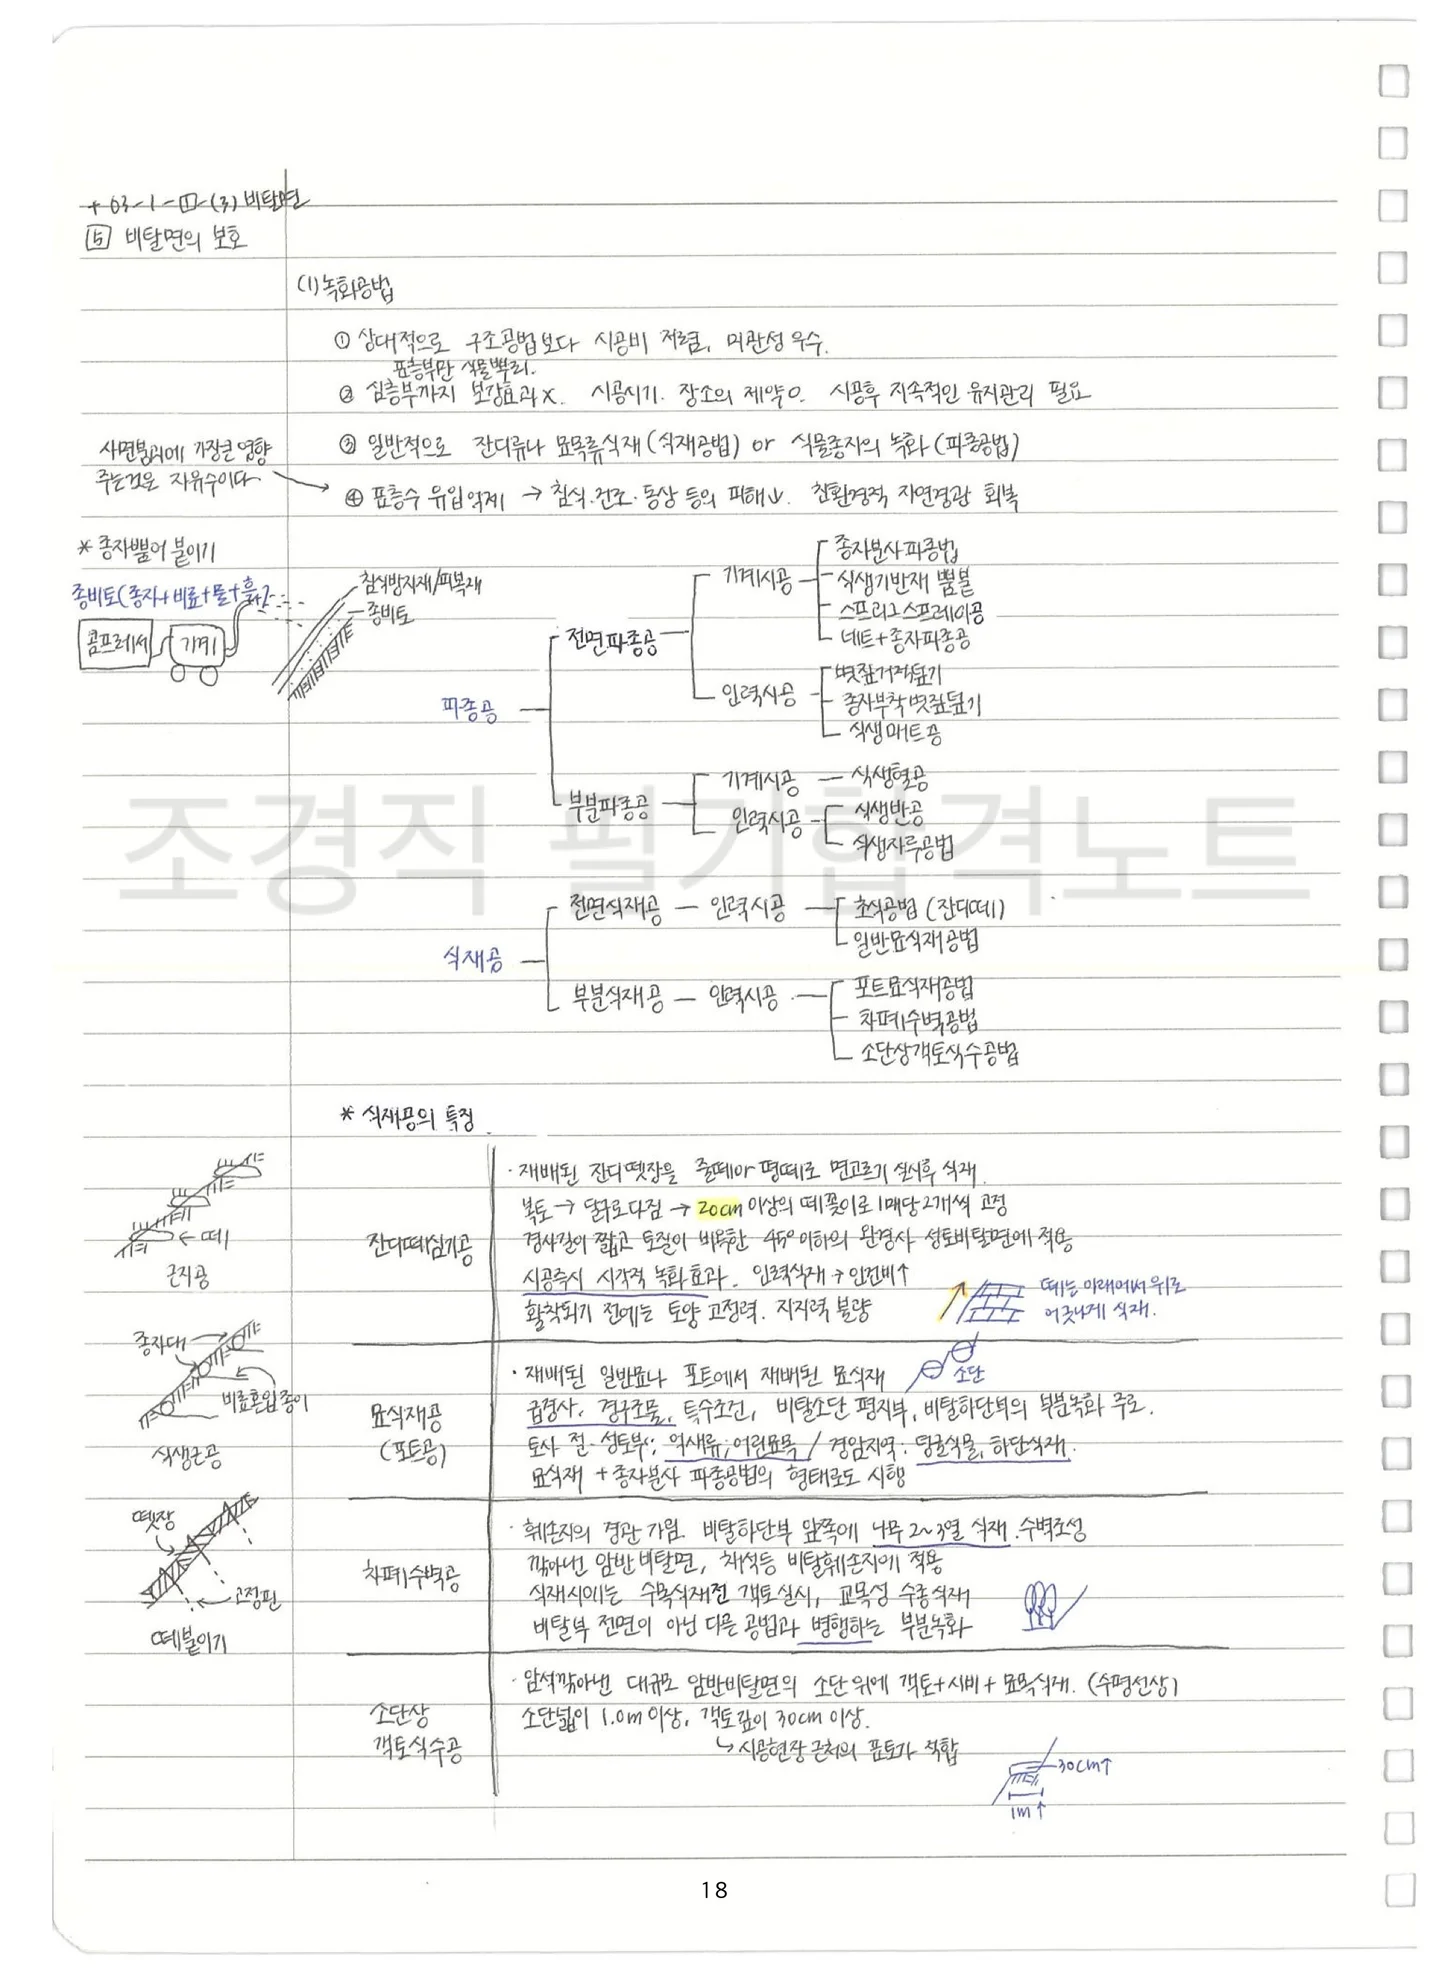 + 03-1-①-(3) 비탈면
⑤ 비탈면의 보호
(1) 녹화공법
① 상대적으로 구조공법보다 시공비 저렴, 미관성 우수.
표층부만 식물뿌리.
② 심층부까지 보강효과 X. 시공시기. 장소의 제약 O. 시공후 지속적인 유지관리 필요
③ 일반적으로 잔디류나 묘목류식재(식재공법) or 식물종자의 녹화(파종공법)
사면붕괴에 가장큰 영향
주는것은 자유수이다.
④ 표층수 유입억제 → 침식·건조·동상 등의 피해↓. 친환경적 자연경관 회복
* 종자뿜어 붙이기
종비토(종자+비료+물+흙+
콤프레셔
기계
침식방지재/피복재
종비토
파종공
전면파종공
기계시공
종자분사파종법
식생기반재 뿜붙
스프리고스프레이공
네트+종자파종공
인력시공
볏짚거적덮기
종자부착볏짚덮기
식생매트공
부분파종공
기계시공 — 식생혈공
인력시공
식생반공
식생자루공법
조경직 필기합격노트
식재공
전면식재공 — 인력시공
초식공법 (잔디떼)
일반묘식재공법
부분식재공 — 인력시공
포트묘식재공법
차폐수벽공법
소단상객토식수공법
* 식재공의 특징
← 떼
근지공
잔디떼심기공
· 재배된 잔디뗏장을 줄떼아 평떼로 면고르기 실시후 식재.
복토 → 달구로다짐 → 20cm 이상의 떼꽂이로 1매당 2개씩 고정
경사길이 짧고 토질이 비옥한 45° 이하의 완경사 성토비탈면에 적용
시공즉시 시각적 녹화효과. 인력식재 → 인건비↑
활착되기 전에는 토양 고정력. 지지력 불량
떼는 아래에서 위로
어긋나게 식재.
종자대
비료혼입종이
식생근공
묘식재공
(포트공)
· 재배된 일반묘나 포트에서 재배된 묘식재
소단
급경사, 경구조물, 특수조건, 비탈소단 평지부, 비탈하단부의 부분녹화 주로.
토사 절·성토부; 억새류, 어린묘목 / 경암지역: 덩굴식물, 하단식재.
묘식재 + 종자분사 파종공법의 형태로도 시행
뗏장
고정핀
떼붙이기
차폐수벽공
· 훼손지의 경관 가림. 비탈하단부 앞쪽에 나무 2~3열 식재. 수벽조성
깎아낸 암반비탈면, 채석등 비탈훼손지에 적용
식재시에는 수목식재전 객토실시, 교목성 수종식재
비탈부 전면이 아닌 다른 공법과 병행하는 부분녹화
소단상
객토식수공
· 암석깎아낸 대규모 암반비탈면의 소단위에 객토+시비+묘목식재. (수평선상)
소단넓이 1.0m 이상, 객토깊이 30cm 이상.
↳ 시공현장 근처의 표토가 적합
30cm↑
1m↑
18